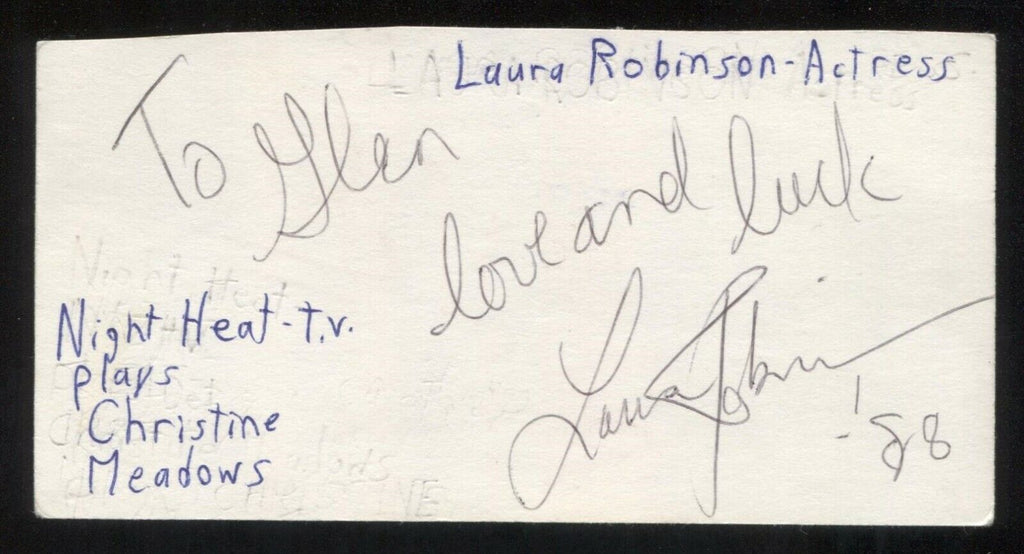 Laura Robinson-Actress
To Glen
love and luck
Laura Robinson
-'88
Night Heat-T.V.
plays
Christine
Meadows